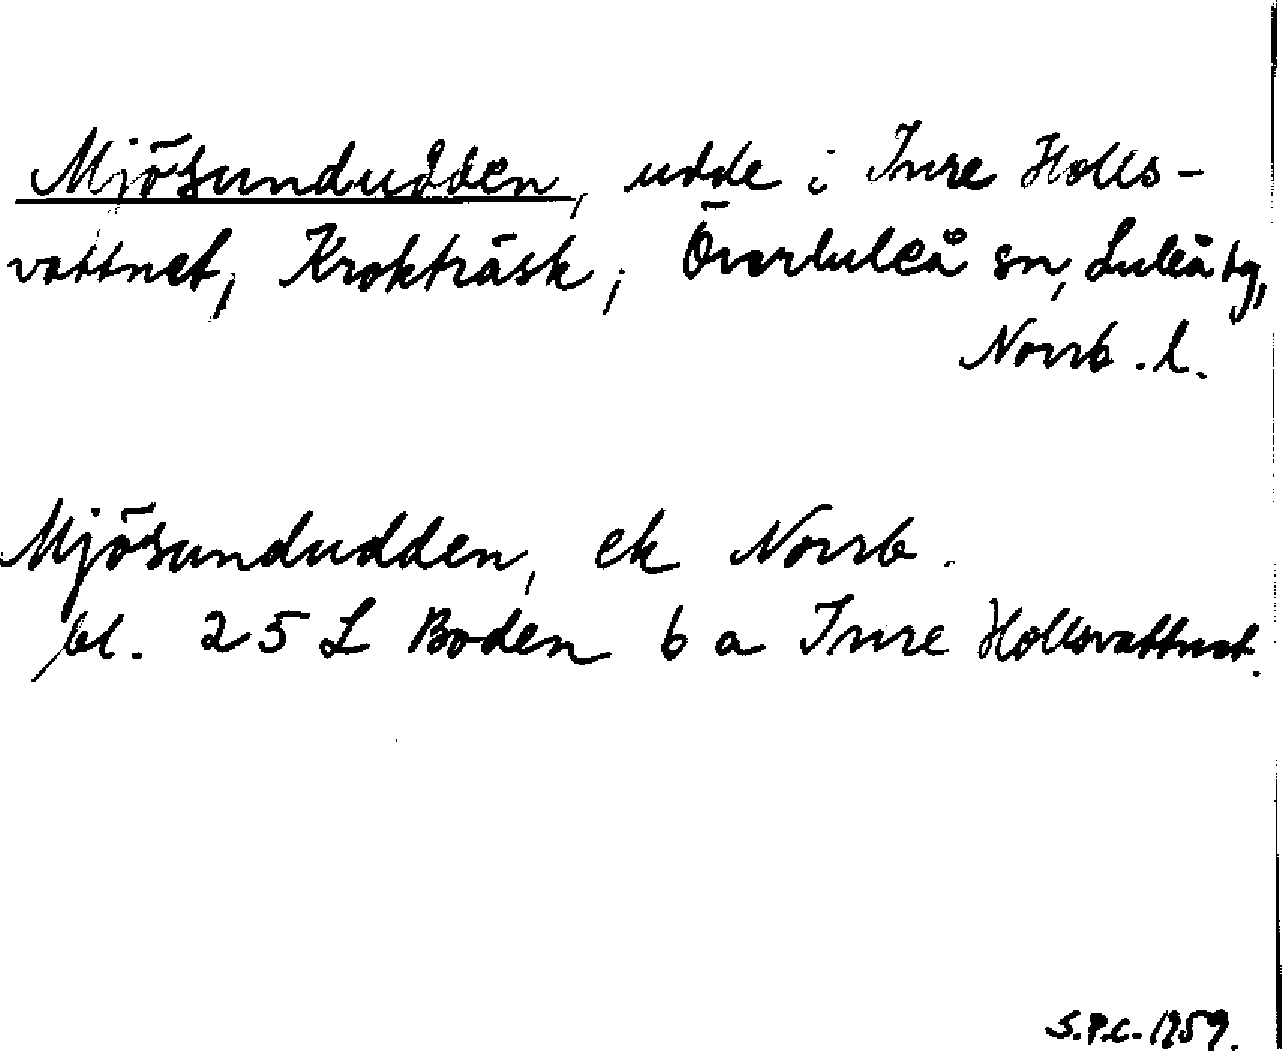 Mjösundudden, udde i Inre Holls-
vattnet, Krokträsk, Överluleå sn, Luleå tg,
Norrb. l.
Mjösundudden, ek Norrb.
bl. 25 L Boden 6 a Inre Hollsvattnet.
S.P.C. 1959.